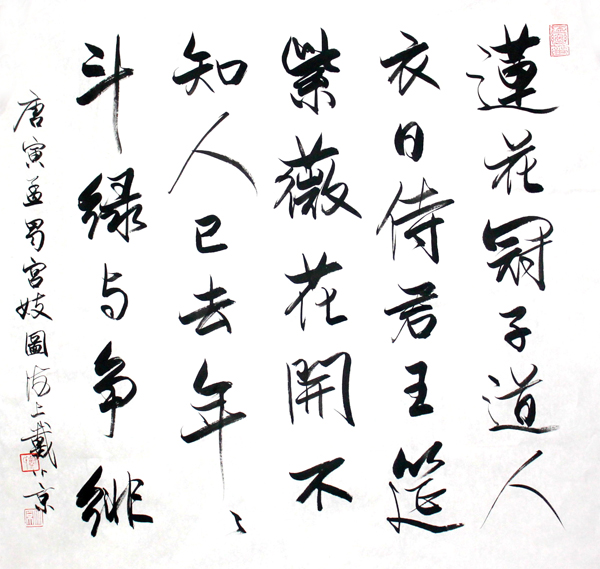 蓮花冠子道人
衣日侍君王筵
紫薇花開不
知人已去年〻
斗緑与争緋
唐寅孟蜀宮妓圖海上戴小京